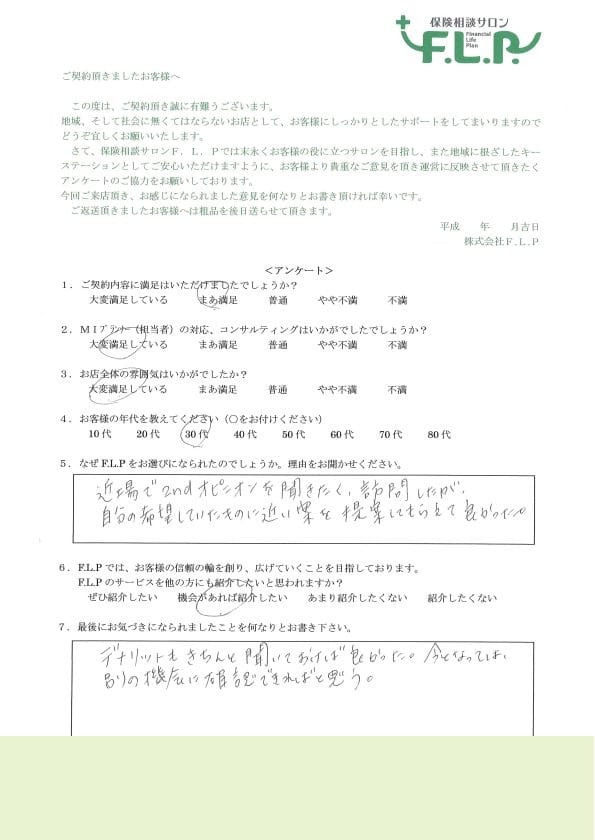 保険相談サロン
F.L.P.
Financial
Life
Plan
ご契約頂きましたお客様へ
この度は、ご契約頂き誠に有難うございます。
地域、そして社会に無くてはならないお店として、お客様にしっかりとしたサポートをしてまいりますので
どうぞ宜しくお願いいたします。
さて、保険相談サロンF．L．Pでは末永くお客様の役に立つサロンを目指し、また地域に根ざしたキー
ステーションとしてご安心いただけますように、お客様より貴重なご意見を頂き運営に反映させて頂きたく
アンケートのご協力をお願いしております。
今回ご来店頂き、お感じになられました意見を何なりとお書き頂ければ幸いです。
ご返送頂きましたお客様へは粗品を後日送らせて頂きます。
平成　年　月吉日
株式会社F.L.P
＜アンケート＞
1．ご契約内容に満足はいただけましたでしょうか？
大変満足している　まあ満足　普通　やや不満　不満
2．MIプランナー（担当者）の対応、コンサルティングはいかがでしたでしょうか？
大変満足している　まあ満足　普通　やや不満　不満
3．お店全体の雰囲気はいかがでしたか？
大変満足している　まあ満足　普通　やや不満　不満
4．お客様の年代を教えてください（○をお付けください）
10代　20代　30代　40代　50代　60代　70代　80代
5．なぜF.L.Pをお選びになられたのでしょうか。理由をお聞かせください。
近場で2ndオピニオンを聞きたく、訪問したが、
自分の希望していたものに近い案を提案してもらえて良かった。
6．F.L.Pでは、お客様の信頼の輪を創り、広げていくことを目指しております。
F.L.Pのサービスを他の方にも紹介したいと思われますか？
ぜひ紹介したい　機会があれば紹介したい　あまり紹介したくない　紹介したくない
7．最後にお気づきになられましたことを何なりとお書き下さい。
デメリットもきちんと聞いておけば良かった。今となっては、
別の機会に確認できればと思う。